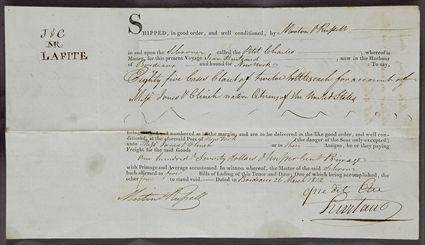 J & C
Mr.
LAFITE
SHIPPED, in good order, and well conditioned, by Morton & Russell
in and upon the Schooner called the Petit Charles, whereof is
Master, for this present Voyage, Jean, now in the Harbour
of Bordeaux and bound for New York To say,
Eighty five Cases Claret of twelve bottles each for account of
Mess Jones & Clinch native Citizens of the United States
being and numbered as in the margin and are to be delivered in the like good order, and well con-
ditioned, at the aforesaid Port of New York (the danger of the Seas only excepted)
unto Mess Jones & Clinch or to their Assigns, he or they paying
Freight for the said Goods
One hundred & Seventy dollars &
with Primage and Average accustomed. In witness whereof, the Master of the said Schooner
hath affirmed to four Bills of Lading of this Tenor and Date; One of which being accomplished, the
other to stand void. Dated in Bordeaux 26 March 1812
que dit être
Morton & Russell